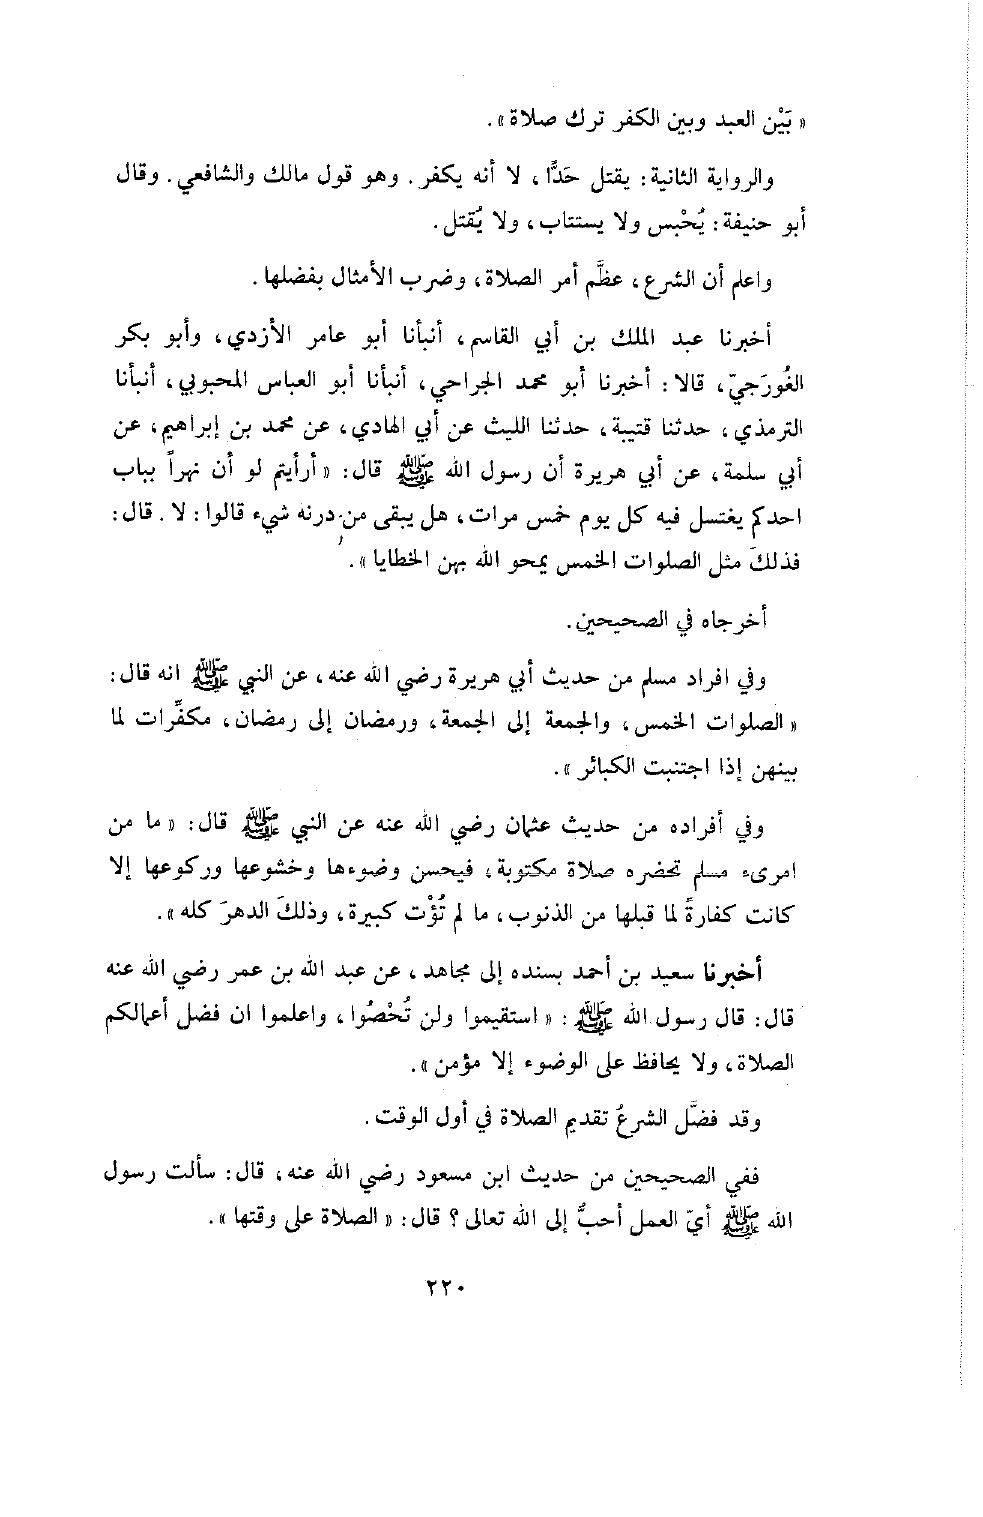 « بَيْن العبد وبين الكفر ترك صلاة ».
والرواية الثانية: يقتل حَدًّا، لا أنه يكفر. وهو قول مالك والشافعي. وقال
أبو حنيفة: يُحْبس ولا يستتاب، ولا يُقتل.
واعلم أن الشرع، عظَّم أمر الصلاة، وضرب الأمثال بفضلها.
أخبرنا عبد الملك بن أبي القاسم، أنبأنا أبو عامر الأزدي، وأبو بكر
الغُورَجيّ، قالا: أخبرنا أبو محمد الجراحي، أنبأنا أبو العباس المحبوبي، أنبأنا
الترمذي، حدثنا قتيبة، حدثنا الليث عن أبي الهادي، عن محمد بن إبراهيم، عن
أبي سلمة، عن أبي هريرة أن رسول الله ﷺ قال: « أرأيتم لو أن نهراً بباب
احدكم يغتسل فيه كل يوم خمس مرات، هل يبقى من درنه شيء قالوا: لا. قال:
فذلكَ مثل الصلوات الخمس يمحو الله بهن الخطايا ».
أخرجاه في الصحيحين.
وفي افراد مسلم من حديث أبي هريرة رضي الله عنه، عن النبي ﷺ انه قال:
« الصلوات الخمس، والجمعة إلى الجمعة، ورمضان إلى رمضان، مكفِّرات لما
بينهن إذا اجتنبت الكبائر ».
وفي أفراده من حديث عثمان رضي الله عنه عن النبي ﷺ قال: « ما من
امرىء مسلم تحضره صلاة مكتوبة، فيحسن وضوءها وخشوعها وركوعها إلا
كانت كفارةً لما قبلها من الذنوب، ما لم تُؤْت كبيرة، وذلكَ الدهرَ كله ».
أخبرنا سعيد بن أحمد بسنده إلى مجاهد، عن عبد الله بن عمر رضي الله عنه
قال: قال رسول الله ﷺ: « استقيموا ولن تُحْصُوا، واعلموا ان فضل أعمالكم
الصلاة، ولا يحافظ على الوضوء إلا مؤمن ».
وقد فضَّل الشرعُ تقديم الصلاة في أول الوقت.
ففي الصحيحين من حديث ابن مسعود رضي الله عنه، قال: سألت رسول
الله ﷺ أيّ العمل أحبُّ إلى الله تعالى؟ قال: « الصلاة على وقتها ».
٢٢٠